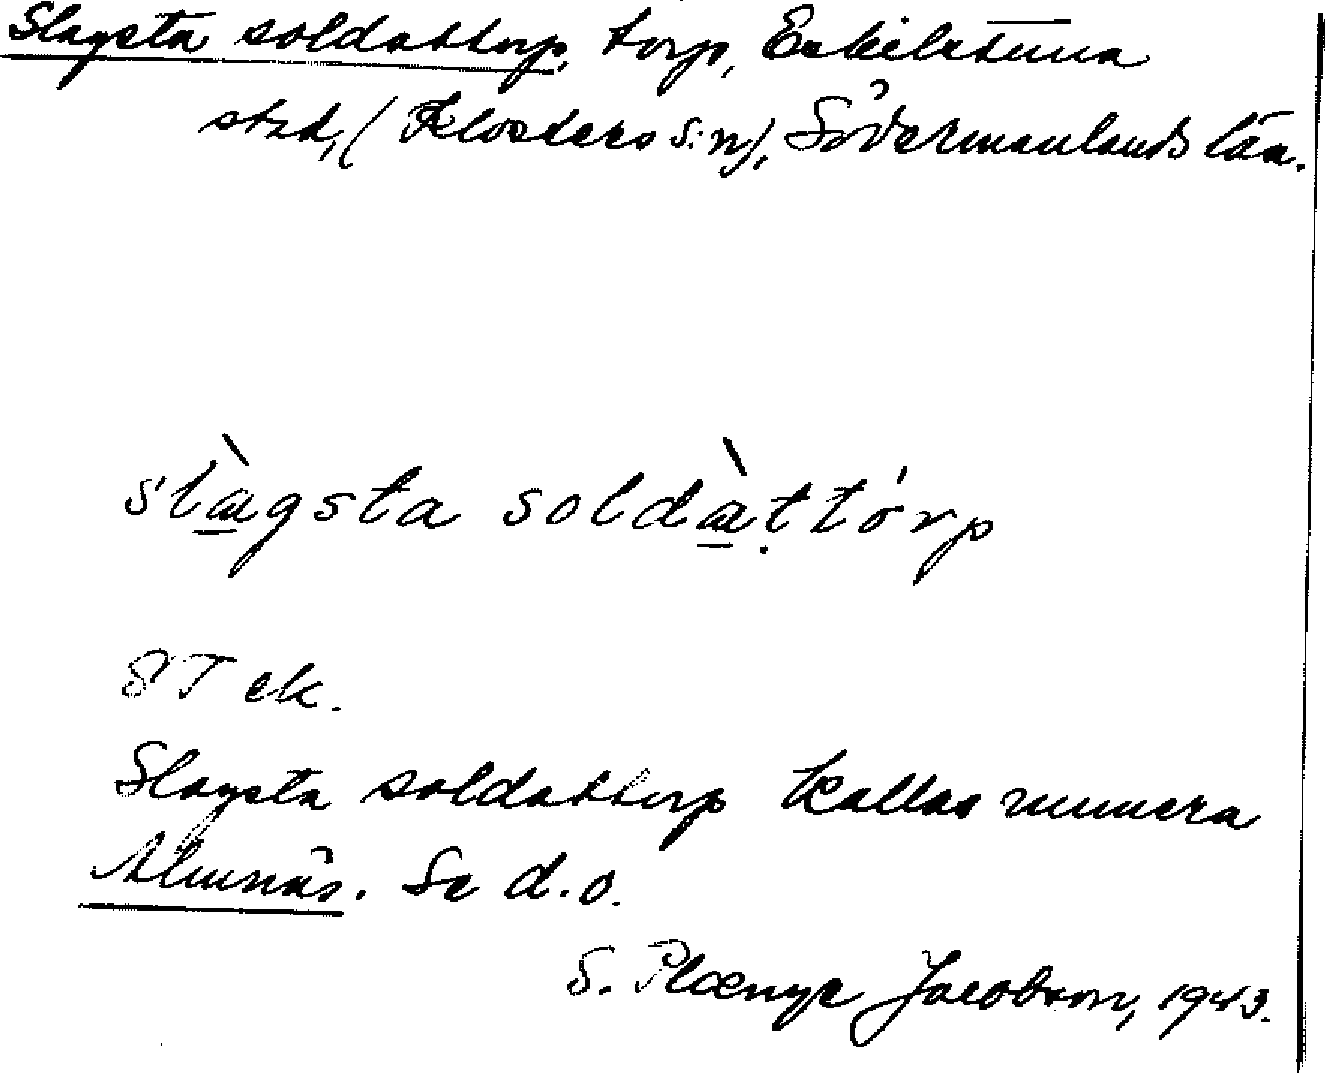 Slagsta soldattorp, torp, Eskilstuna
stad, (Klosters s:n), Södermanlands län.
slàgsta soldàttórp
ST ek.
Slagsta soldattorp kallas numera
Almnäs. Se d.o.
S. Jacobson, 1943.